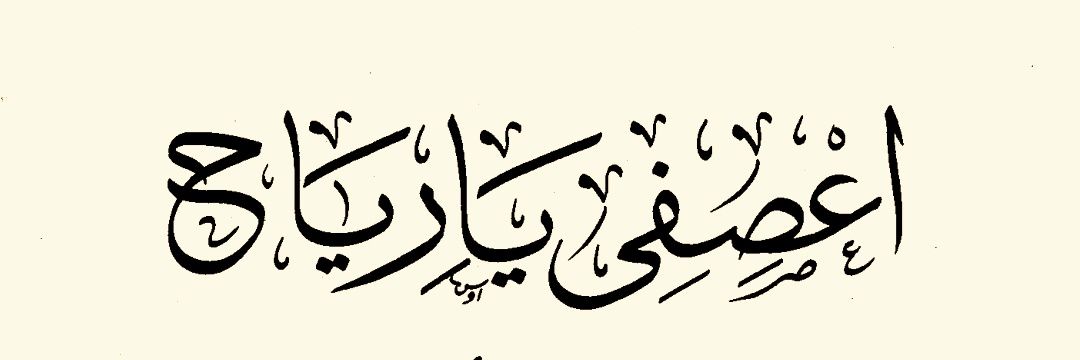 اعْصِفِى يَا رِيَاح